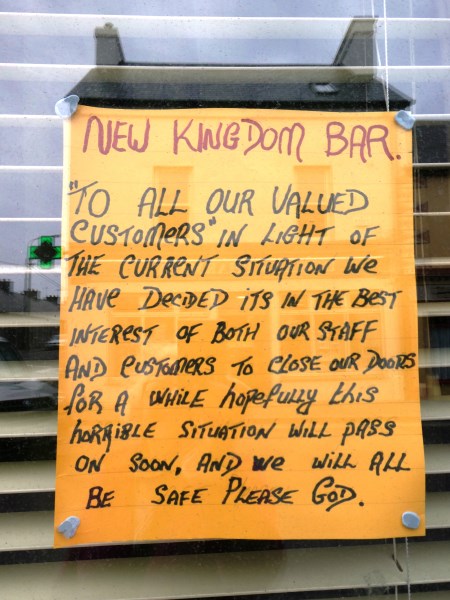 NEW KINGDOM BAR.
"TO ALL OUR VALUED
CUSTOMERS" IN LIGHT OF
THE CURRENT SITUATION WE
HAVE DECIDED ITS IN THE BEST
INTEREST OF BOTH OUR STAFF
AND CUSTOMERS TO CLOSE OUR DOORS
FOR A WHILE hopefully this
horrible SITUATION WILL PASS
ON SOON, AND we WILL ALL
BE SAFE PLEASE GOD.